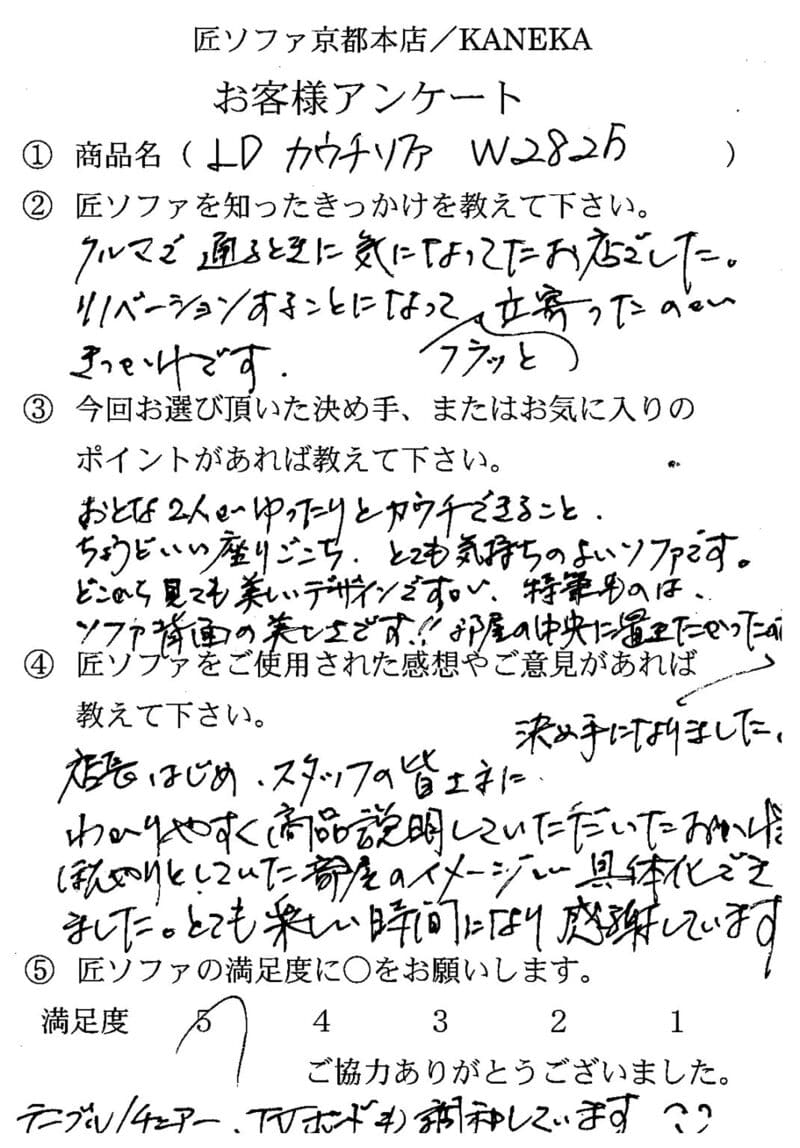 匠ソファ京都本店／KANEKA
お客様アンケート
① 商品名（ LD カウチソファ W2825 ）
② 匠ソファを知ったきっかけを教えて下さい。
クルマで通るときに気になってたお店でした。
リノベーションすることになって、立寄ったのが
きっかけです. フラッと
③ 今回お選び頂いた決め手、またはお気に入りの
ポイントがあれば教えて下さい。
おとな2人がゆったりとカウチできること.
ちょうどいい座りごこち. とても気持ちのよいソファです。
どこから見ても美しいデザインですが、特筆ものは、
ソファ背面の美しさです!! お部屋の中央に置きたかったの
④ 匠ソファをご使用された感想やご意見があれば
教えて下さい。
決め手になりました.
店長はじめ、スタッフの皆さまに
わかりやすく商品説明していただいたおかげで
ぼんやりとしていた部屋のイメージが具体化でき
ました。とても楽しい時間になり感謝しています
⑤ 匠ソファの満足度に○をお願いします。
満足度 5 4 3 2 1
ご協力ありがとうございました。
テーブル/チェアー、TVボードも調和しています